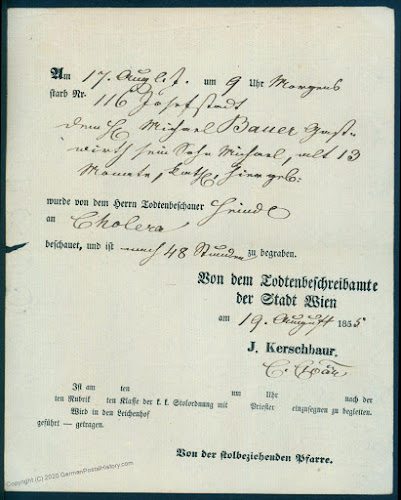 Am 17. August l. J. um 9 Uhr Morgens
starb Nr. 116 Josefstadt
dem H. Michael Bauer Gast-
wirth sein Sohn Michael, alt 13
Monate, kath, hiergeb:
wurde von dem Herrn Todtenbeschauer
an Cholera
beschauet, und ist nach 48 Stunden zu begraben.
Von dem Todtenbeschreibamte
der Stadt Wien
am 19. August 1855
J. Kerschbaur,
Ist am ten um Uhr nach der
ten Rubrik ten Klasse der k. k. Stolordnung mit Priester einzusegnen zu begleiten.
Wird in den Leichenhof
geführt — getragen.
Von der stolbeziehenden Pfarre.
Copyright (C) 2020 GermanPostalHistory.com